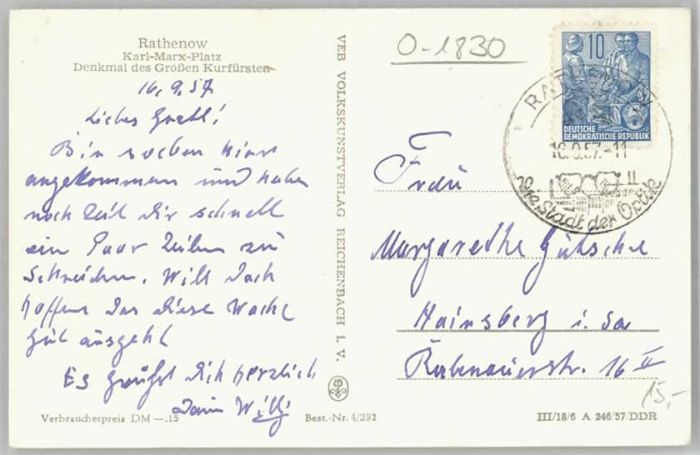 Rathenow
Karl-Marx-Platz
Denkmal des Großen Kurfürsten
16.9.57
Liebes Gretl!
Bin soeben hier
angekommen und habe
noch Zeit Dir schnell
ein Paar Zeilen zu
Schreiben. Will doch
hoffen das diese Woche
gut ausgeht
Es grüßt Dich herzlich
Dein Willi
Verbraucherpreis DM —.15
Best.-Nr. 4/292
VEB VOLKSKUNSTVERLAG REICHENBACH I. V.
O-1830
10
DEUTSCHE
DEMOKRATISCHE REPUBLIK
RATHENOW
16.9.57.-11
die Stadt der Optik
Frau
Margarethe
Hainsberg i. Sa
Rabenauerstr. 16 II
15,-
III/18/6 A 246/57/DDR